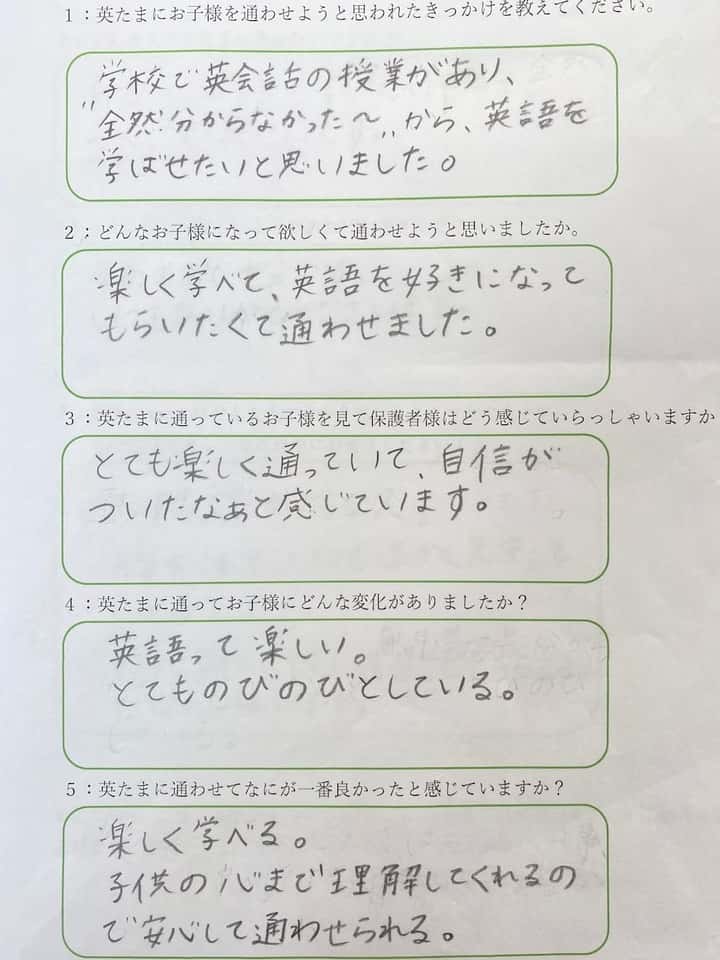 1：英たまにお子様を通わせようと思われたきっかけを教えてください。
学校で英会話の授業があり、
"全然分からなかった〜"から、英語を
学ばせたいと思いました。
2：どんなお子様になって欲しくて通わせようと思いましたか。
楽しく学べて、英語を好きになって
もらいたくて通わせました。
3：英たまに通っているお子様を見て保護者様はどう感じていらっしゃいますか
とても楽しく通っていて、自信が
ついたなぁと感じています。
4：英たまに通ってお子様にどんな変化がありましたか？
英語って楽しい。
とてものびのびとしている。
5：英たまに通わせてなにが一番良かったと感じていますか？
楽しく学べる。
子供の心まで理解してくれるの
で安心して通わせられる。